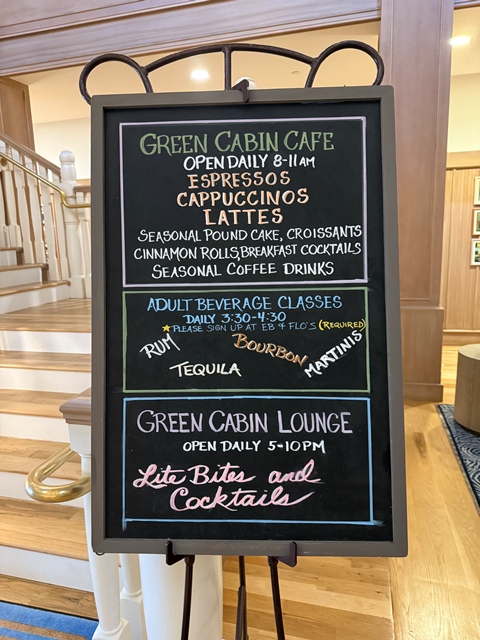 GREEN CABIN CAFE
OPEN DAILY 8-11AM
ESPRESSOS
CAPPUCCINOS
LATTES
SEASONAL POUND CAKE, CROISSANTS
CINNAMON ROLLS, BREAKFAST COCKTAILS
SEASONAL COFFEE DRINKS
ADULT BEVERAGE CLASSES
DAILY 3:30-4:30
★PLEASE SIGN UP AT EB & FLO'S (REQUIRED)
RUM
BOURBON
MARTINIS
TEQUILA
GREEN CABIN LOUNGE
OPEN DAILY 5-10PM
Lite Bites and
Cocktails